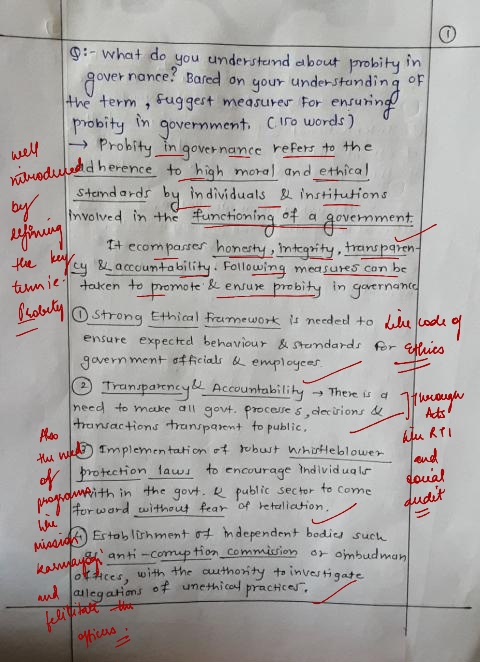 1
Q:- What do you understand about probity in
governance? Based on your understanding of
the term, suggest measures for ensuring
probity in government. (150 words)
→ Probity in governance refers to the
adherence to high moral and ethical
standards by individuals & institutions
involved in the functioning of a government.
It ecompasses honesty, integrity, transparen-
cy & accountability. Following measures can be
taken to promote & ensure probity in governance
① Strong Ethical framework is needed to
ensure expected behaviour & standards for
government officials & employees
② Transparency & Accountability → There is a
need to make all govt. processes, decisions &
transactions transparent to public.
③ Implementation of robust whistleblower
protection laws to encourage individuals
within the govt. & public sector to come
forward without fear of retaliation.
④ Establishment of independent bodies such
as anti-corruption commission or ombudman
offices, with the authority to investigate
allegations of unethical practices.
well
introduced
by
defining
the key
term i.e.
Probity
like code of
Ethics
through
Acts
like RTI
and
social
audit
Also
the need
of
programs
like
mission
karmayogi
and
felicitate the
officers.